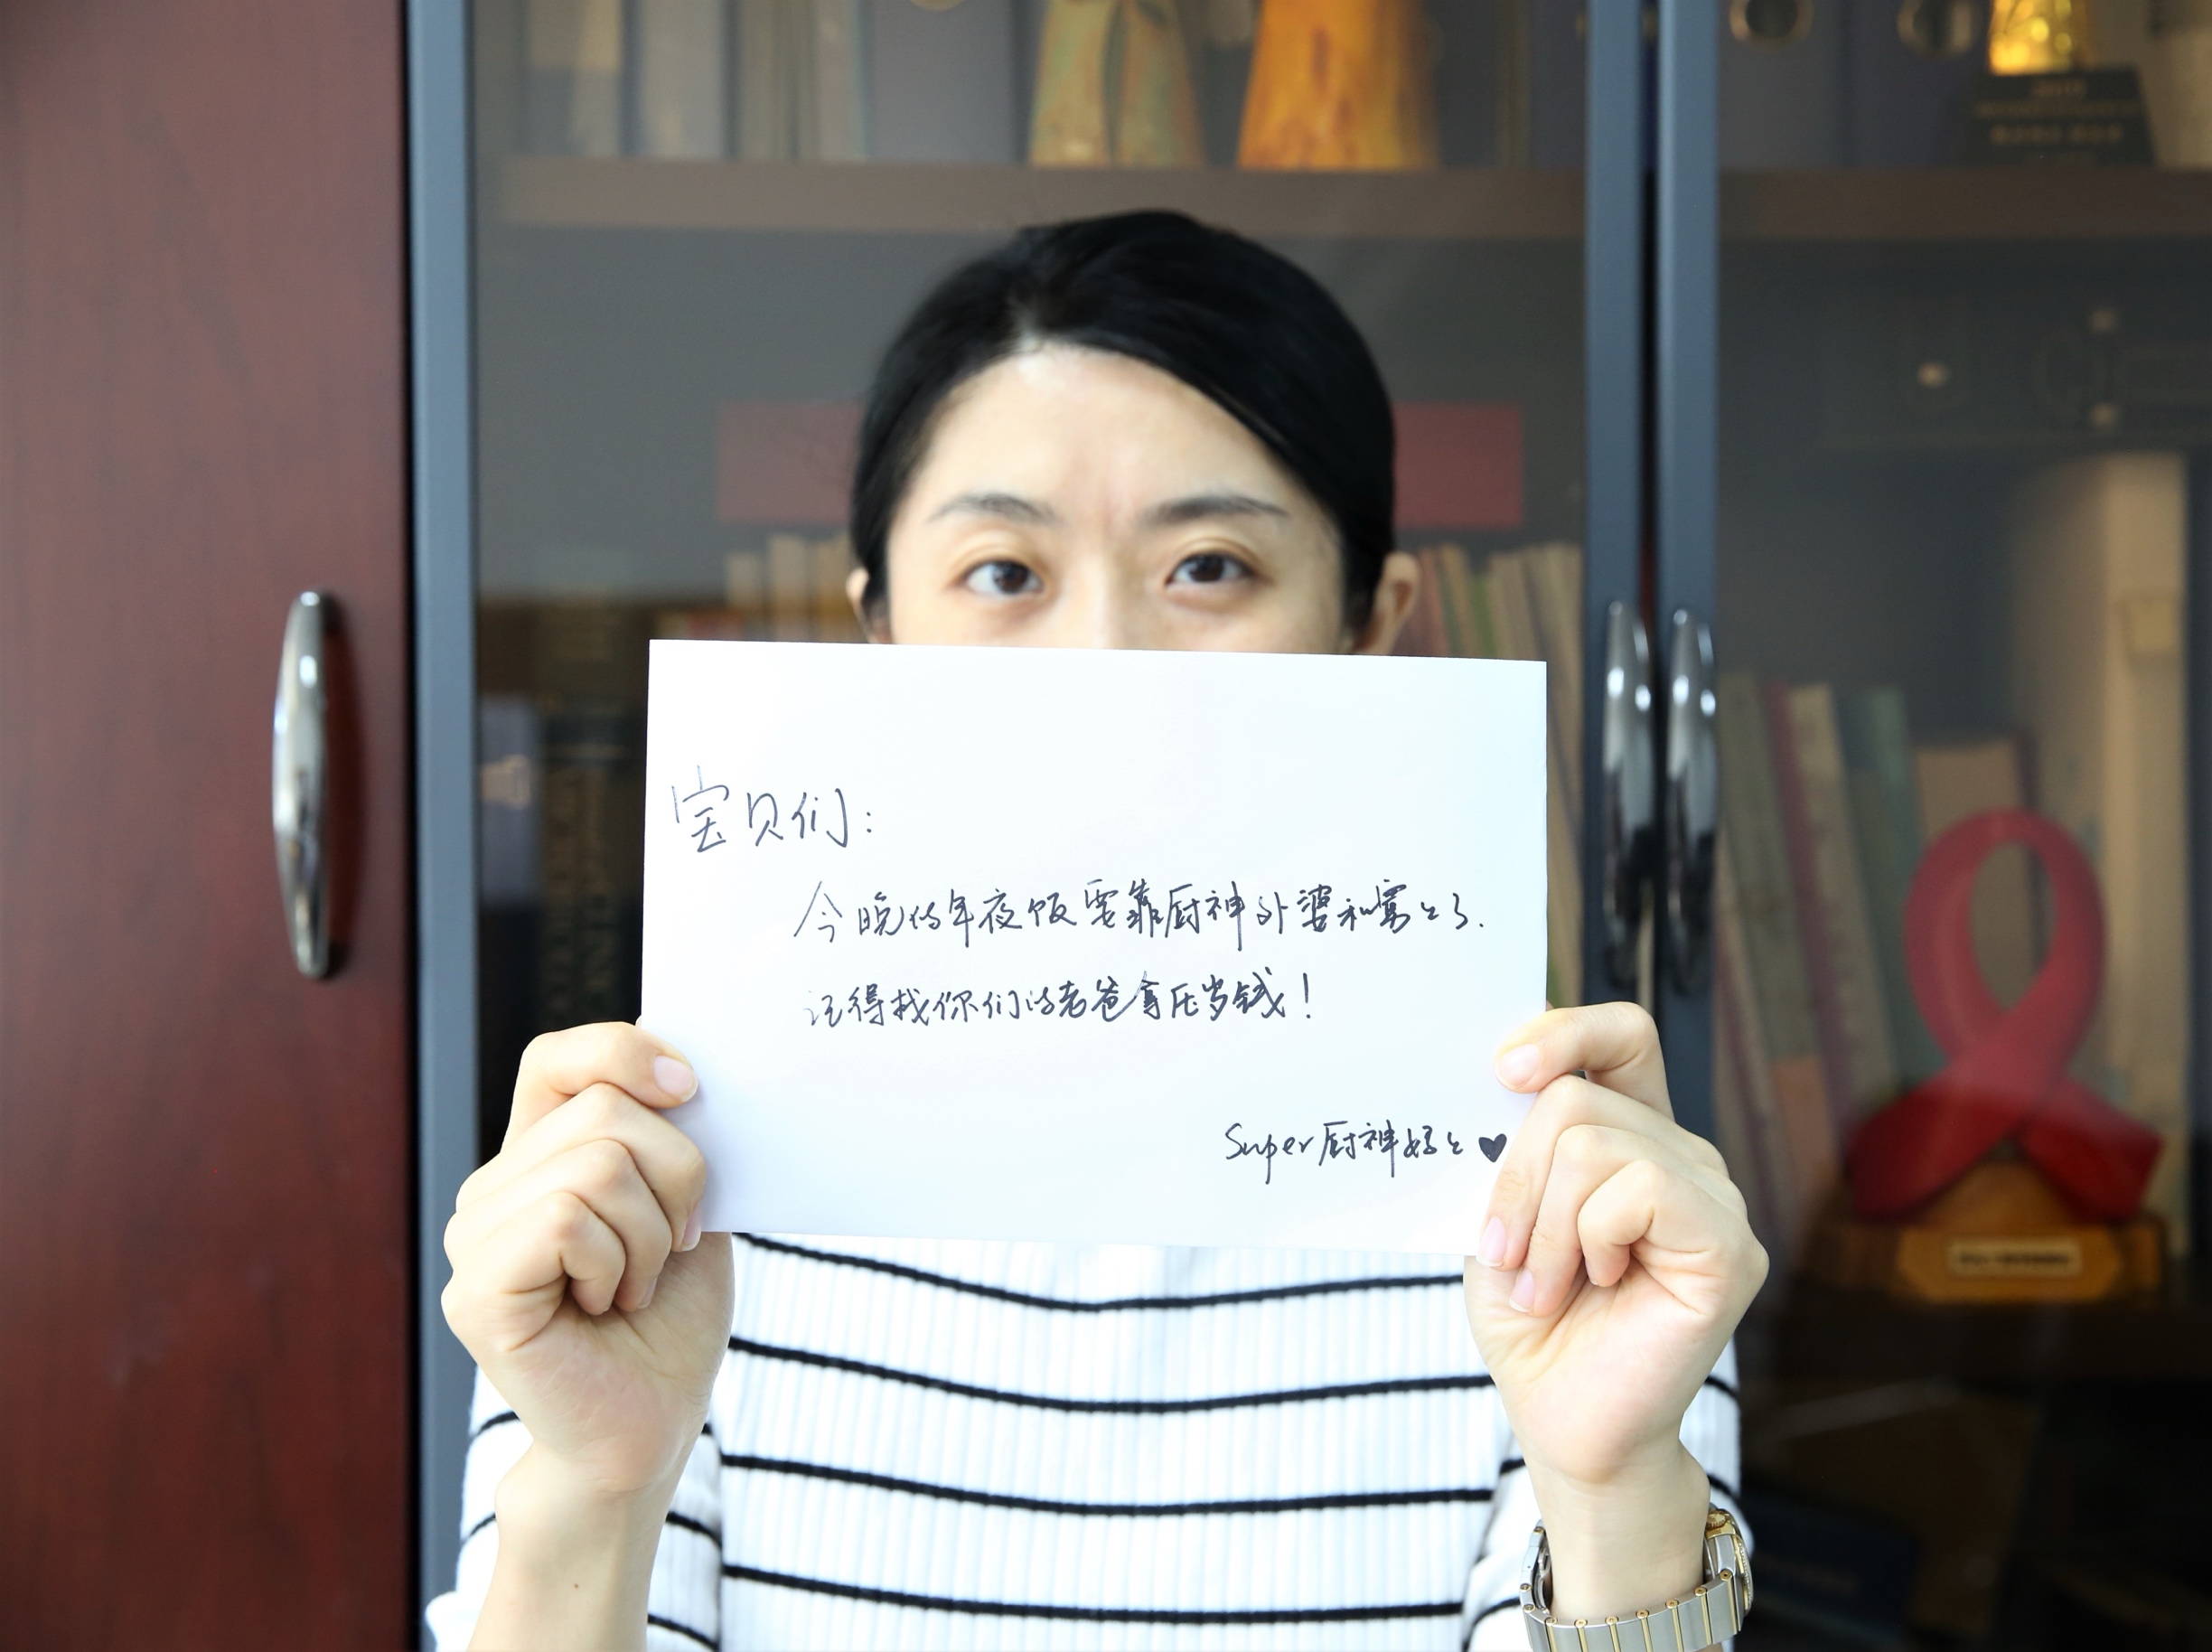 宝贝们：
今晚的年夜饭要靠厨神外婆和了.
记得找你们的老爸拿压岁钱！
Super厨神 ♥